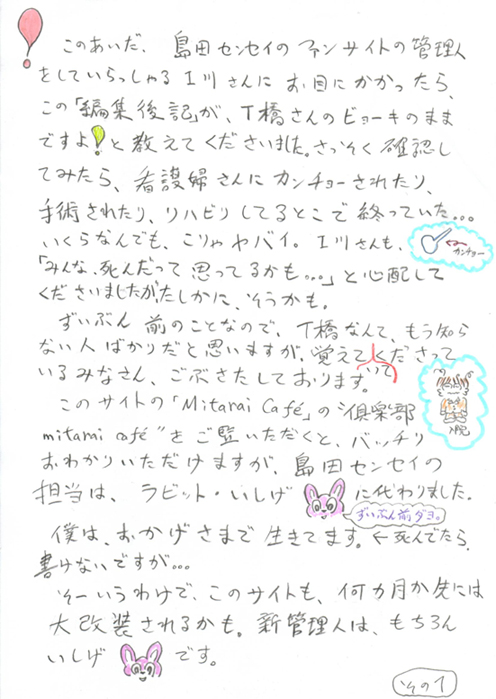 このあいだ、島田センセイのファンサイトの管理人
をしていらっしゃるI川さんにお目にかかったら、
この「編集後記」が、T橋さんのビョーキのまま
ですよ!と教えてくださいました。さっそく確認し
てみたら、看護婦さんにカンチョーされたり、
手術されたり、リハビリしてるとこで終っていた…
いくらなんでも、こりゃヤバイ。I川さんも、
←カンチョー
「みんな、死んだって思ってるかも…」と心配して
くださいましたが、たしかに、そうかも。
ずいぶん前のことなので、T橋なんて、もう知ら
ない人ばかりだと思いますが、覚えてくださって
いて
いるみなさん、ごぶさたしております。
このサイトの「Mitarai Café」の"倶楽部
mitarai café"をご覧いただくと、バッチリ
おわかりいただけますが、島田センセイの
担当は、ラビット・いしげ に代わりました。
ずいぶん前ダヨ。
僕は、おかげさまで生きてます。←死んでたら、
書けないですが…
そーいうわけで、このサイトも、何カ月か先には
大改装されるかも。新管理人は、もちろん
いしげ です。
その1